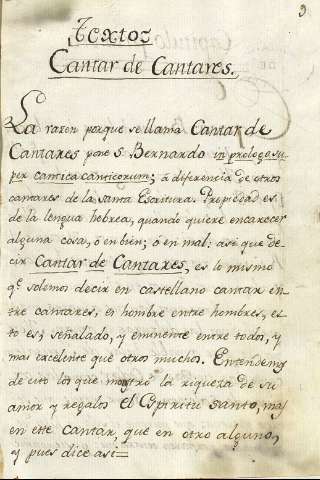 9
Textos
Cantar de Cantares.
La razon porque se llama Cantar de
Cantares pone S. Bernardo in prologo su-
per cantica canticorum; á diferencia de otros
cantares de la santa Escritura. Propiedad es
de la lengua hebrea, quando quiere encarecer
alguna cosa, ó en bien; ó en mal: asi que de-
cir Cantar de Cantares, es lo mismo
qe. solemos decir en castellano cantar en-
tre cantares, es hombre entre hombres, es-
to es; señalado, y eminente entre todos, y
mas excelente que otros muchos. Entendemos
de esto los que mostró la riqueza de su
amor y regalos el Espiritu santo, mas
en este cantar, que en otro alguno,
y pues dice asi=